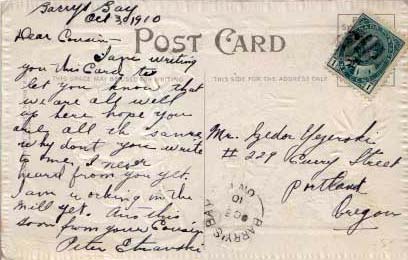 Barrys Bay
Oct 3, 1910
Dear Cousin
POST CARD
I am writing
you this Card to
let you know that
we are all well
up here hope you
are all the same
why dont you write
to me, I never
heard from you yet.
I am working in the
mill yet. Ans this
soon from your Cousin
Peter
THIS SIDE FOR THE ADDRESS ONLY
Mr.
# 229 Curry Street
Portland
Oregon
BARRY'S BAY
OC 3
10
ONT